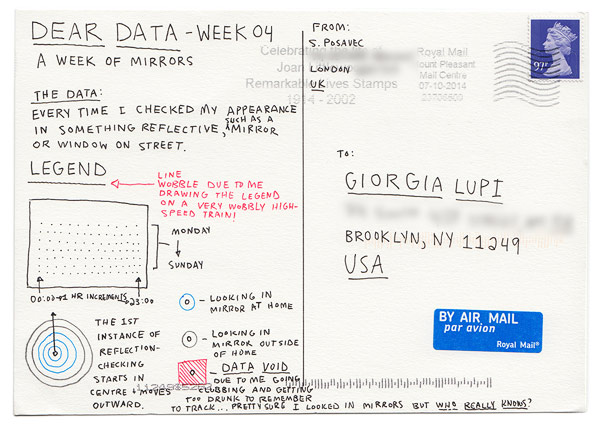 DEAR DATA - WEEK 04
A WEEK OF MIRRORS
THE DATA:
EVERY TIME I CHECKED MY APPEARANCE
IN SOMETHING REFLECTIVE, SUCH AS A MIRROR
OR WINDOW ON STREET.
LEGEND
LINE
WOBBLE DUE TO ME
DRAWING THE LEGEND
ON A VERY WOBBLY HIGH-
SPEED TRAIN!
MONDAY
SUNDAY
00:00 1 HR INCREMENTS 23:00
THE 1ST
INSTANCE OF
REFLECTION-
CHECKING
STARTS IN
CENTRE + MOVES
OUTWARD.
- LOOKING IN
MIRROR AT HOME
- LOOKING IN
MIRROR OUTSIDE
OF HOME
- DATA VOID
DUE TO ME GOING
CLUBBING AND GETTING
TOO DRUNK TO REMEMBER
TO TRACK... PRETTY SURE I LOOKED IN MIRRORS BUT WHO REALLY KNOWS?
FROM:
S. POSAVEC
LONDON
UK
Celebrating the
Joan
Remarkable Lives Stamps
1914 - 2002
Royal Mail
ount Pleasant
Mail Centre
07-10-2014
97p
TO:
GIORGIA LUPI
BROOKLYN, NY 11249
USA
BY AIR MAIL
par avion
Royal Mail®